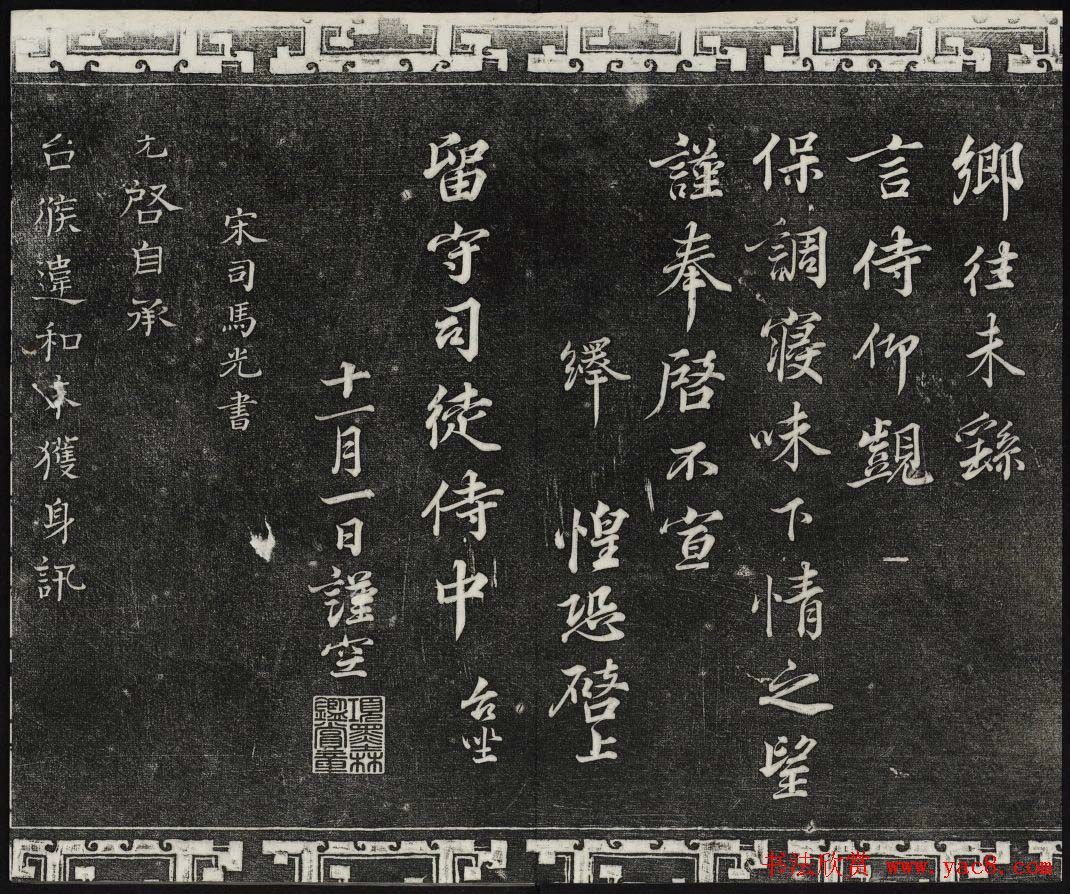 鄉往未繇
言侍仰觀
保調寢味下情之望
謹奉啓不宣
繹 惶恐啓上
留守司徒侍中 台坐
十一月一日謹空
項墨林鑑賞章
宋司馬光書
光啓自承
台候違和不獲身訊
书法欣赏 www.yac8.com